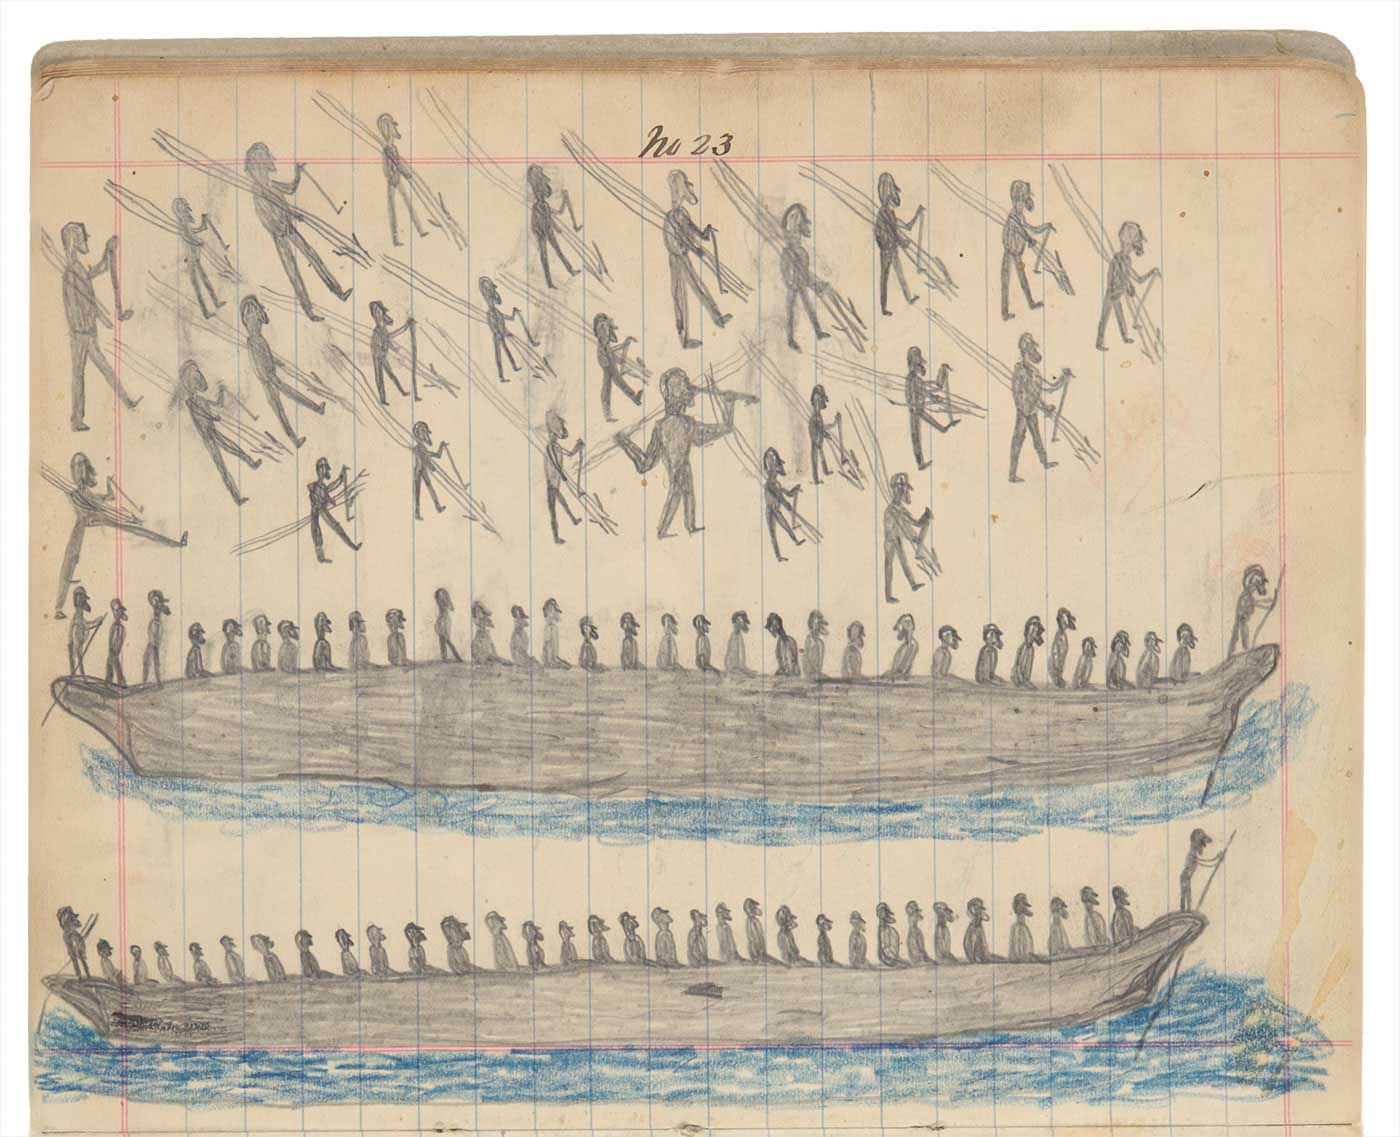 No 23